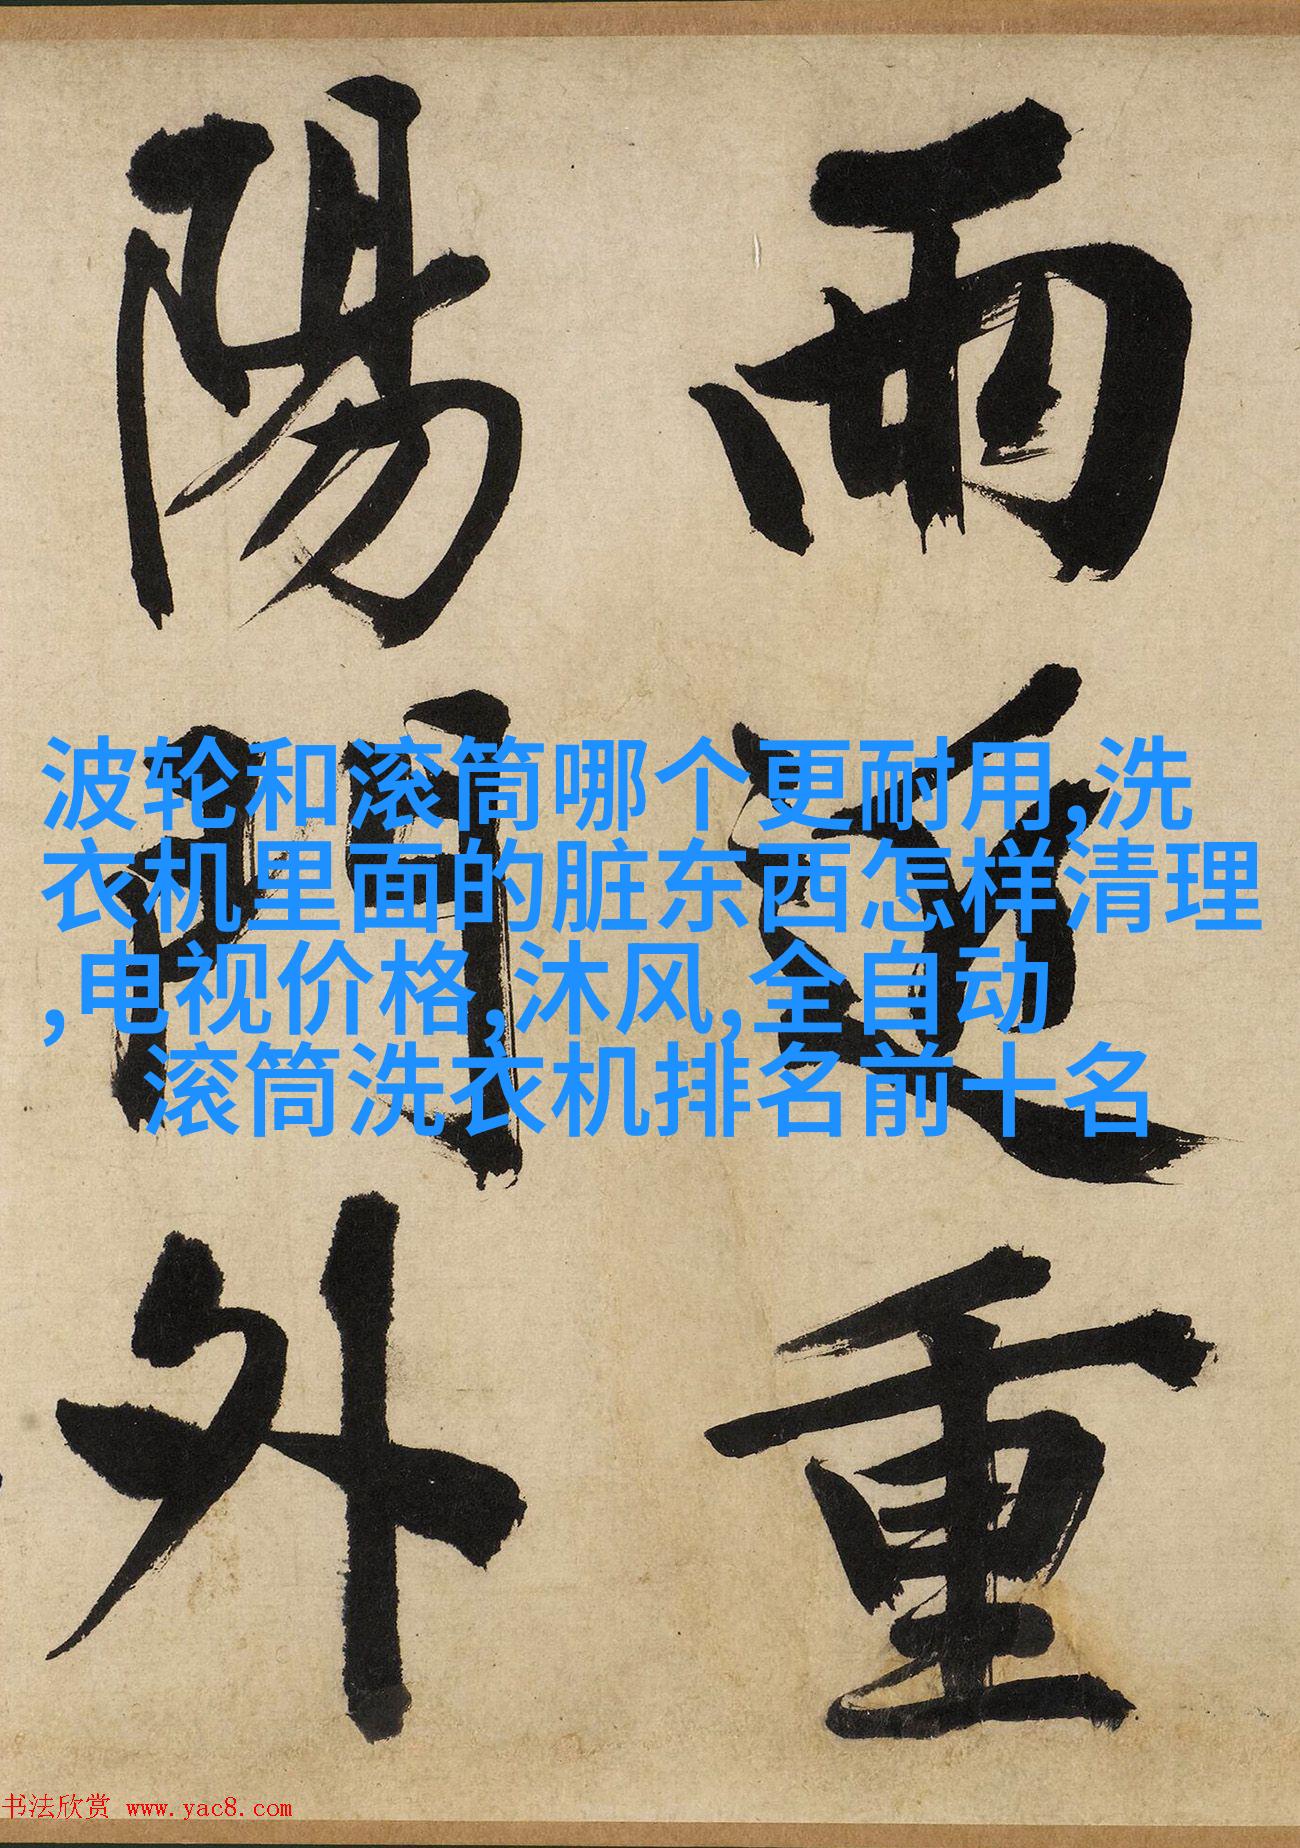 雨近重
陽門外
波轮和滚筒哪个更耐用,洗
衣机里面的脏东西怎样清理
,电视价格,沐风,全自动
滚筒洗衣机排名前十名
书法欣赏 www.yac8.com